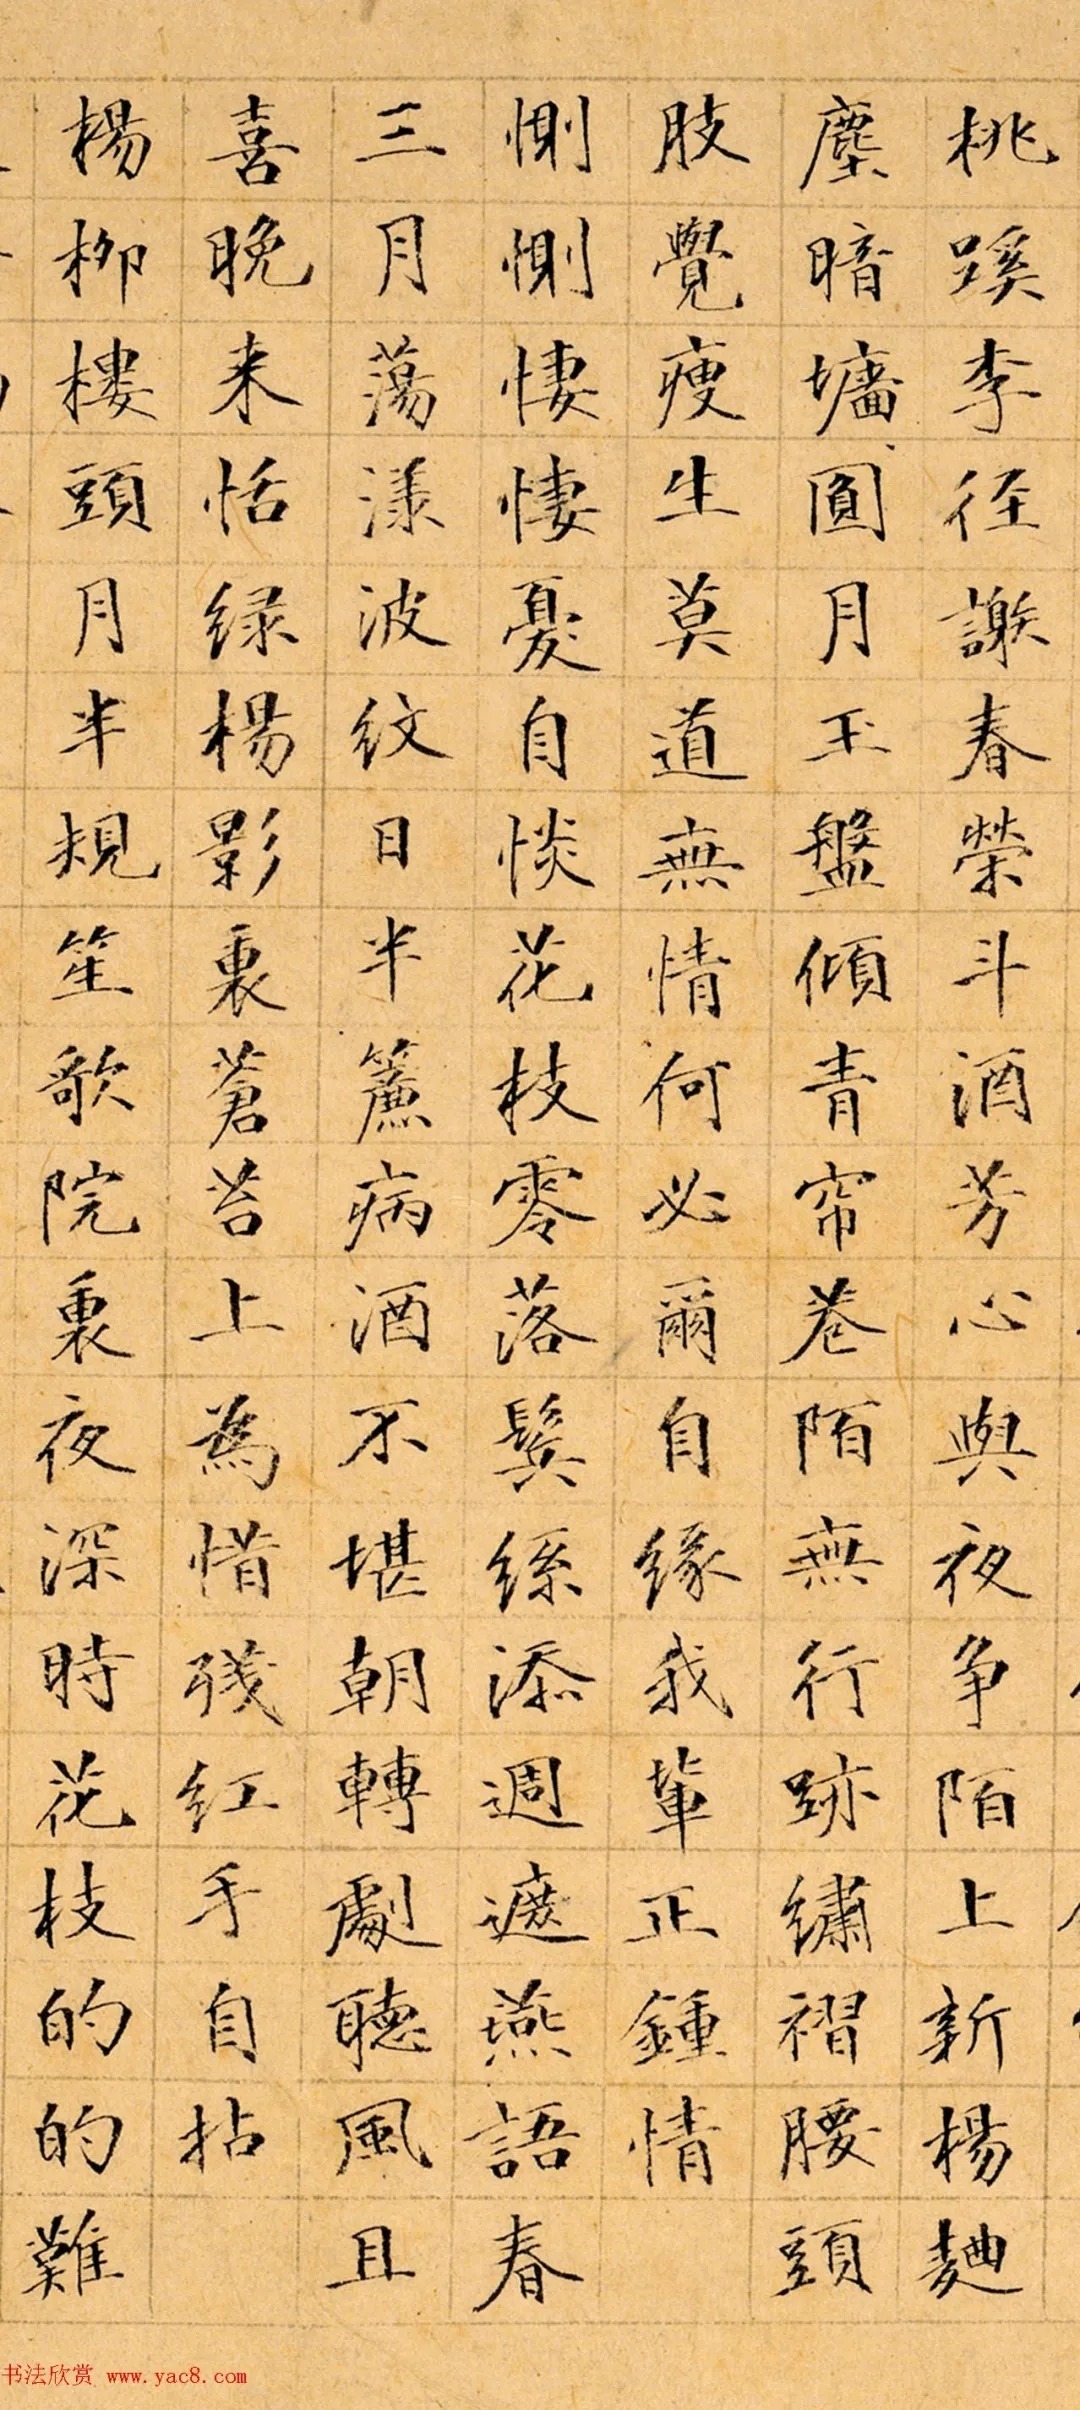 桃蹊李徑謝春榮斗酒芳心與夜争陌上新楊麯
塵暗墻圓月玉盤傾青帘巷陌無行跡繡褶腰頭
肢覺瘦生莫道無情何必爾自緣我輩正鍾情
惻惻悽悽憂自惔花枝零落鬢絲添週遮燕語春
三月蕩漾波紋日半簾病酒不堪朝轉劇聽風且
喜晚来恬绿楊影裏蒼苔上為惜残红手自拈
楊柳樓頭月半規笙歌院裏夜深時花枝的的難
书法欣赏 www.yac8.com